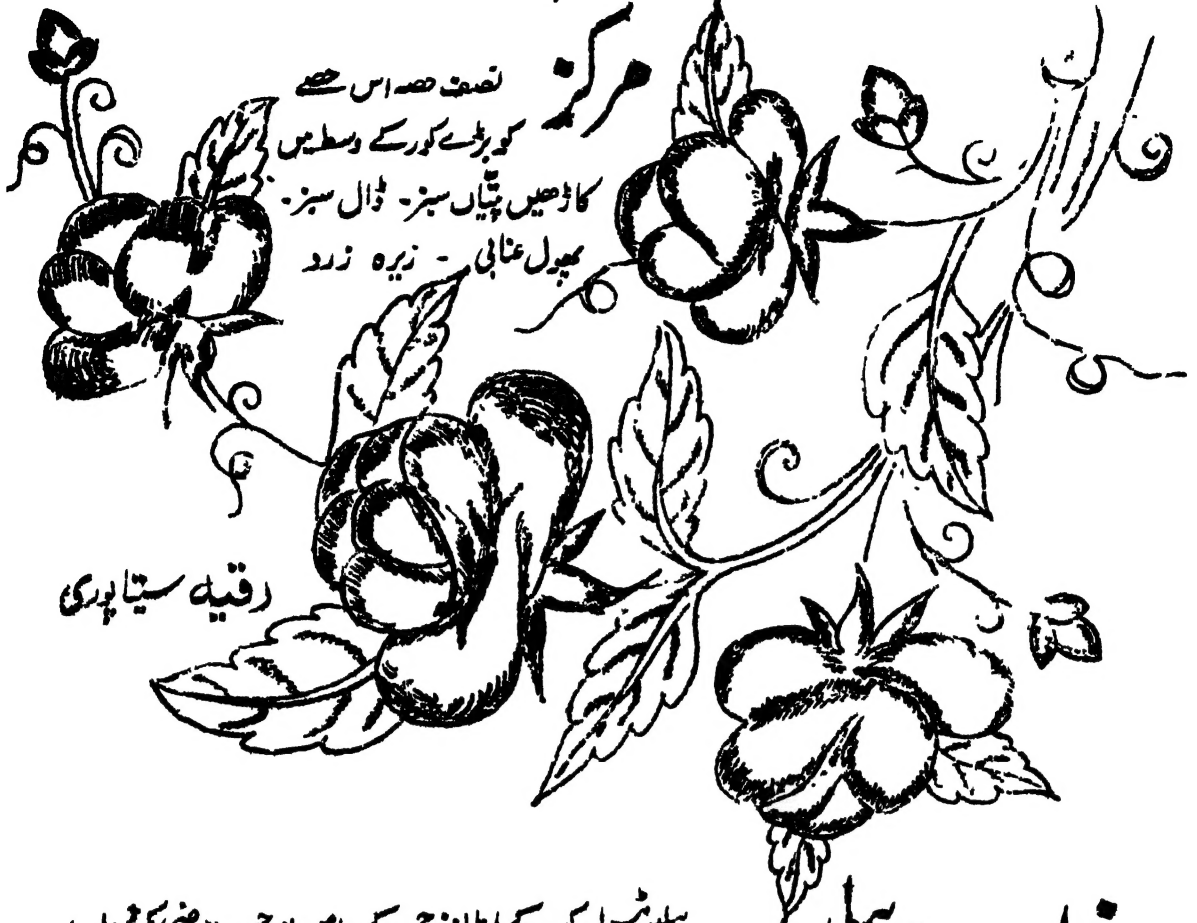 مرکز
نصف حصہ اس حصے
کو بڑے کور کے وسط میں
کاڑھیں پتّیاں سبز۔ ڈال سبز۔
پھول عنابی ۔ زیرہ زرد
رقیہ سیتاپوری